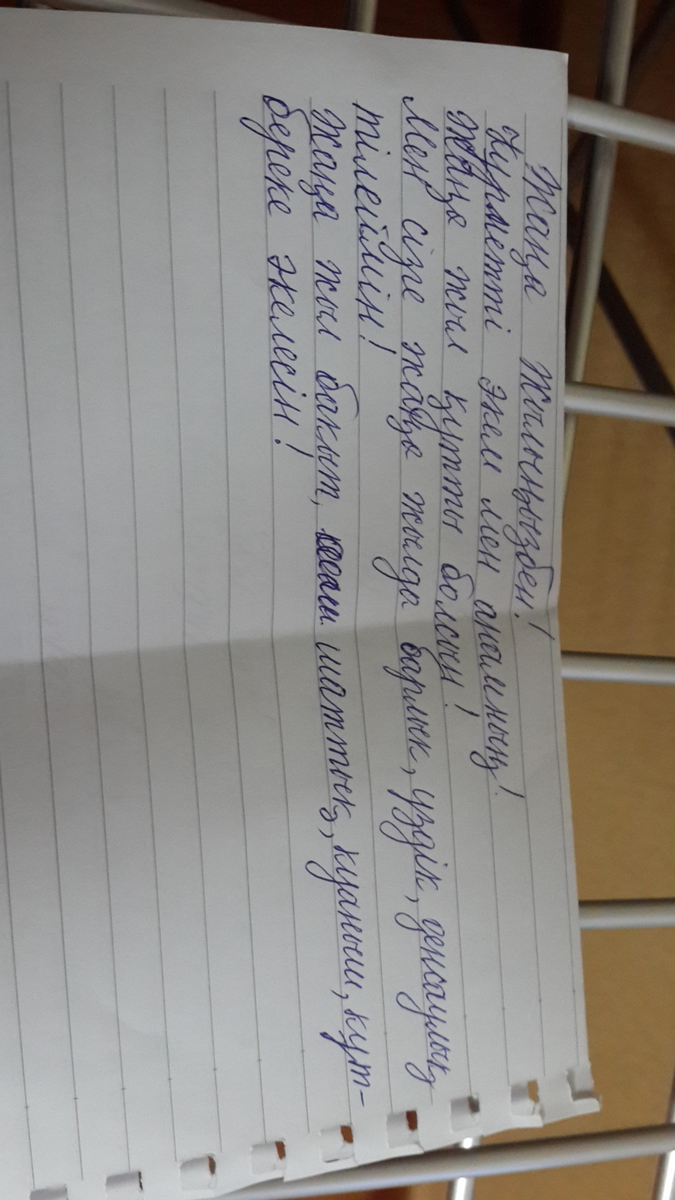 Жаңа жылыңызбен!
Құрметті әкем мен анамның!
Жаңа жыл құтты болсын!
Мен сізге жаңа жылда барлык, үздік, денсаулық
тілеймін!
Жаңа жыл бакыт, шаттық, куаныш, құт-
береке әкелесін!